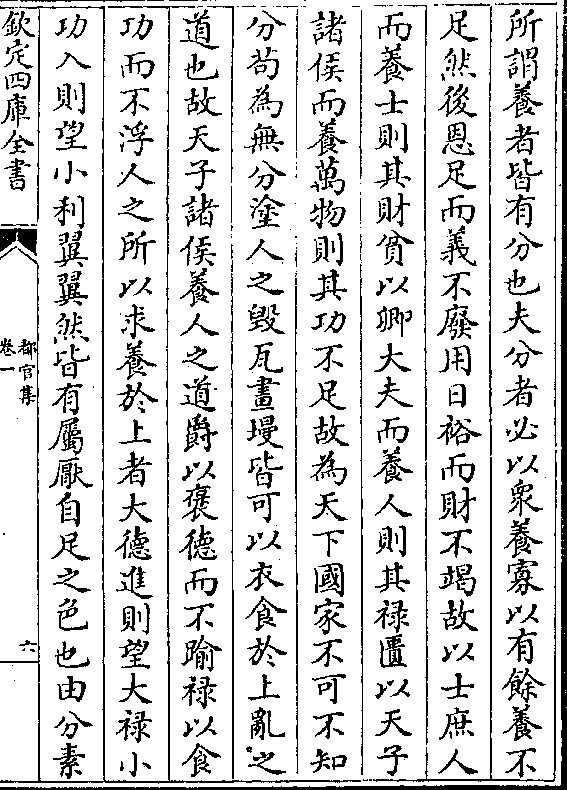 所謂養者皆有分也夫分者必以衆養寡以有餘養不
足然後恩足而義不廢用日裕而財不竭故以士庶人
而養士則其財貧以卿大夫而養人則其禄匱以天子
諸侯而養萬物則其功不足故為天下國家不可不知
分茍為無分塗人之毀瓦畫墁皆可以衣食於上亂之
道也故天子諸侯養人之道爵以襃德而不踰禄以食
功而不浮人之所以求養於上者大德進則望大禄小
功入則望小利翼翼然皆有屬厭自足之色也由分素
欽定四庫全書
都官集
卷一
六